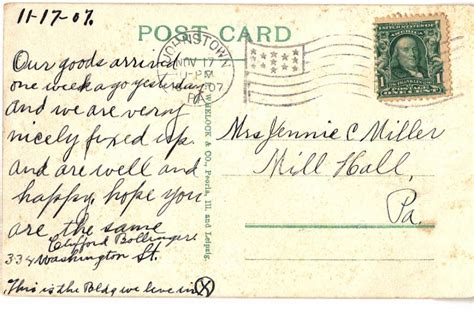 11-17-07.
POST CARD
JOHNSTOWN
NOV 17
10-PM
PA.
Our goods arrived
one week ago yesterday
and we are very
nicely fixed up.
and are well and
happy, hope you
are the same
Clifford Bollinger
334 Washington St.
This is the Bldg we live in X
WHEELOCK & CO., Peoria, Ill. and Leipzig.
Mrs Jennie C Miller
Mill Hall,
Pa.
1
1